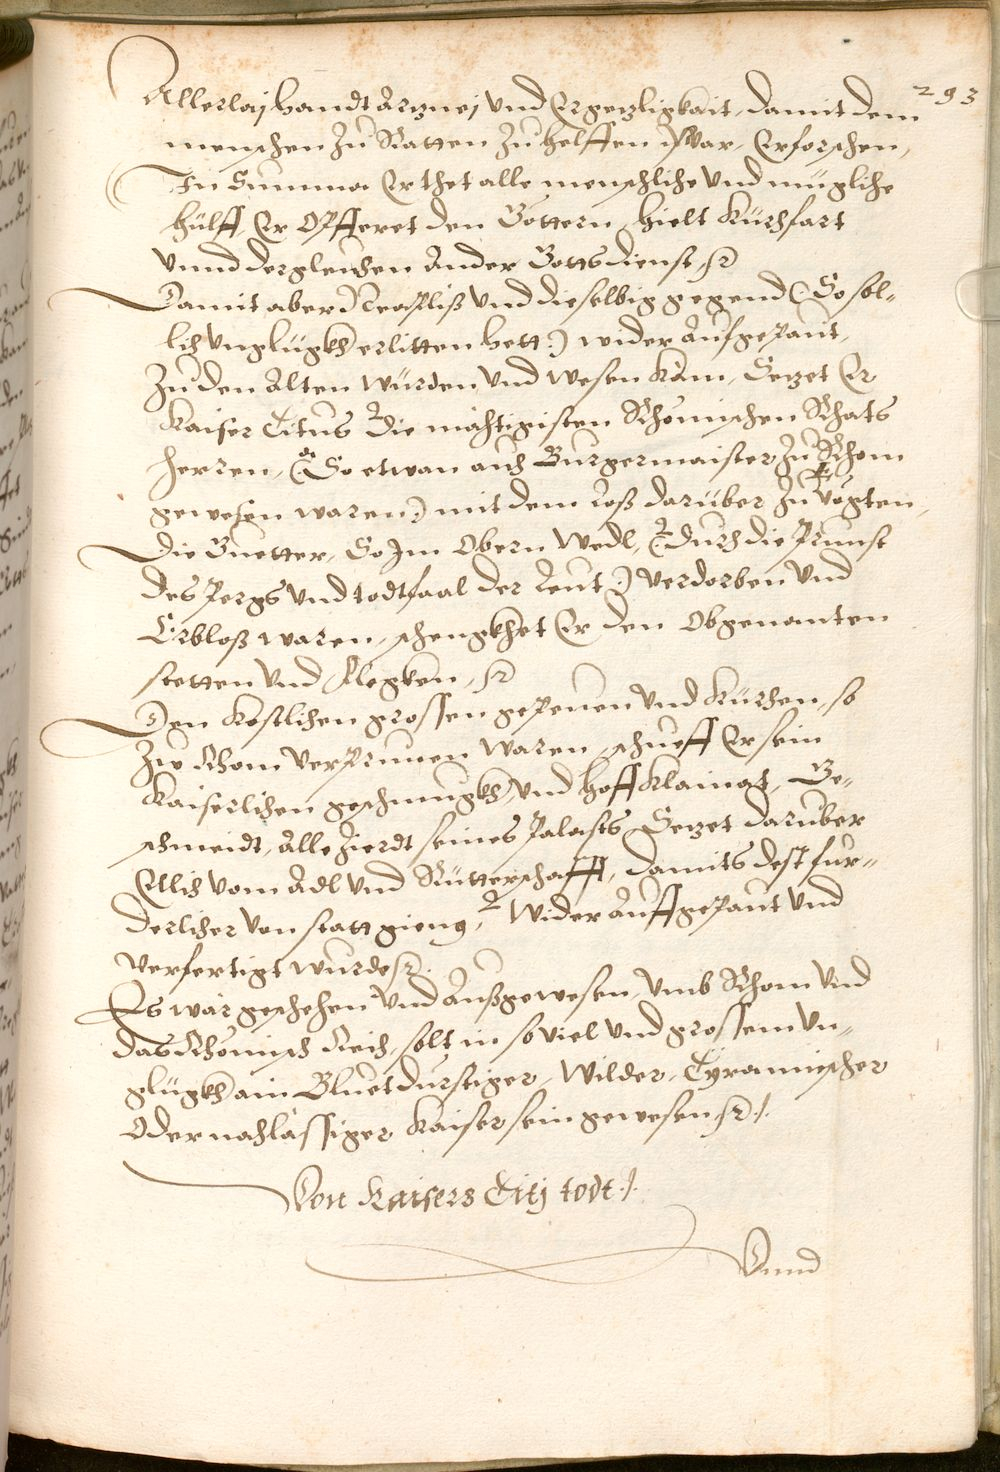 293
Allerlaj handt Artznej vnd Ergetzligkait, damit dem
menschen Zu Ratten Zu helffen War, Erforschen,
In Summa Er thet alle menschliche vnd mügliche
hülff, Er Opfferet den Göttern, hielt Kürchfart
vnnd dergleichen Ander Gottsdienst, etc
Damit aber Neapliß vnd dieselbig gegend (: So sol-
lich vnglügkh erlitten hett :) wider Aufgepaut,
Zu den Alten Würden vnd wesen Kam, Setzet Er
Kaiser Titus Die mächtigisten Rhömischen Rhats
herren, (: So etwan auch Burgermaister Zu Rhom
gewesen waren :) mit dem Loß darüber Zu Vögten,
Die Guetter, So Im Obern Wedl, (: durch die Prunst
des Pergs vnd todtfaal der Leut :) verdorben vnd
Erbloß waren, schengkhet Er den Obgenanten
stetten vnd Flegken, etc
Den Kostlichen grossen gepeuen vnd Kürchen, so
Zw Rhom verprunnen waren, schueff Er sein
Kaiserlichen geschmugkh, vnd hoff Klainat, Ge-
schmeidt, Alle Zierdt seines Palasts, Setzet darüber
Etlich vom Adl vnd Rütterschafft, damits dest für-
derlicher von statt gieng, Wider Auffgepaut vnd
verfertigt wurde etc.
Es wär geschehen vnd Außgewesen vmb Rhom vnd
das Rhömisch Reich, solt in so viel vnd grossem vn-
glügkh ain Bluetdurstiger, Wilder, Tyrannischer
Oder nachlässiger Kaiser sein gewesen etc /.
Von Kaisers Titj todt /.
Vnnd